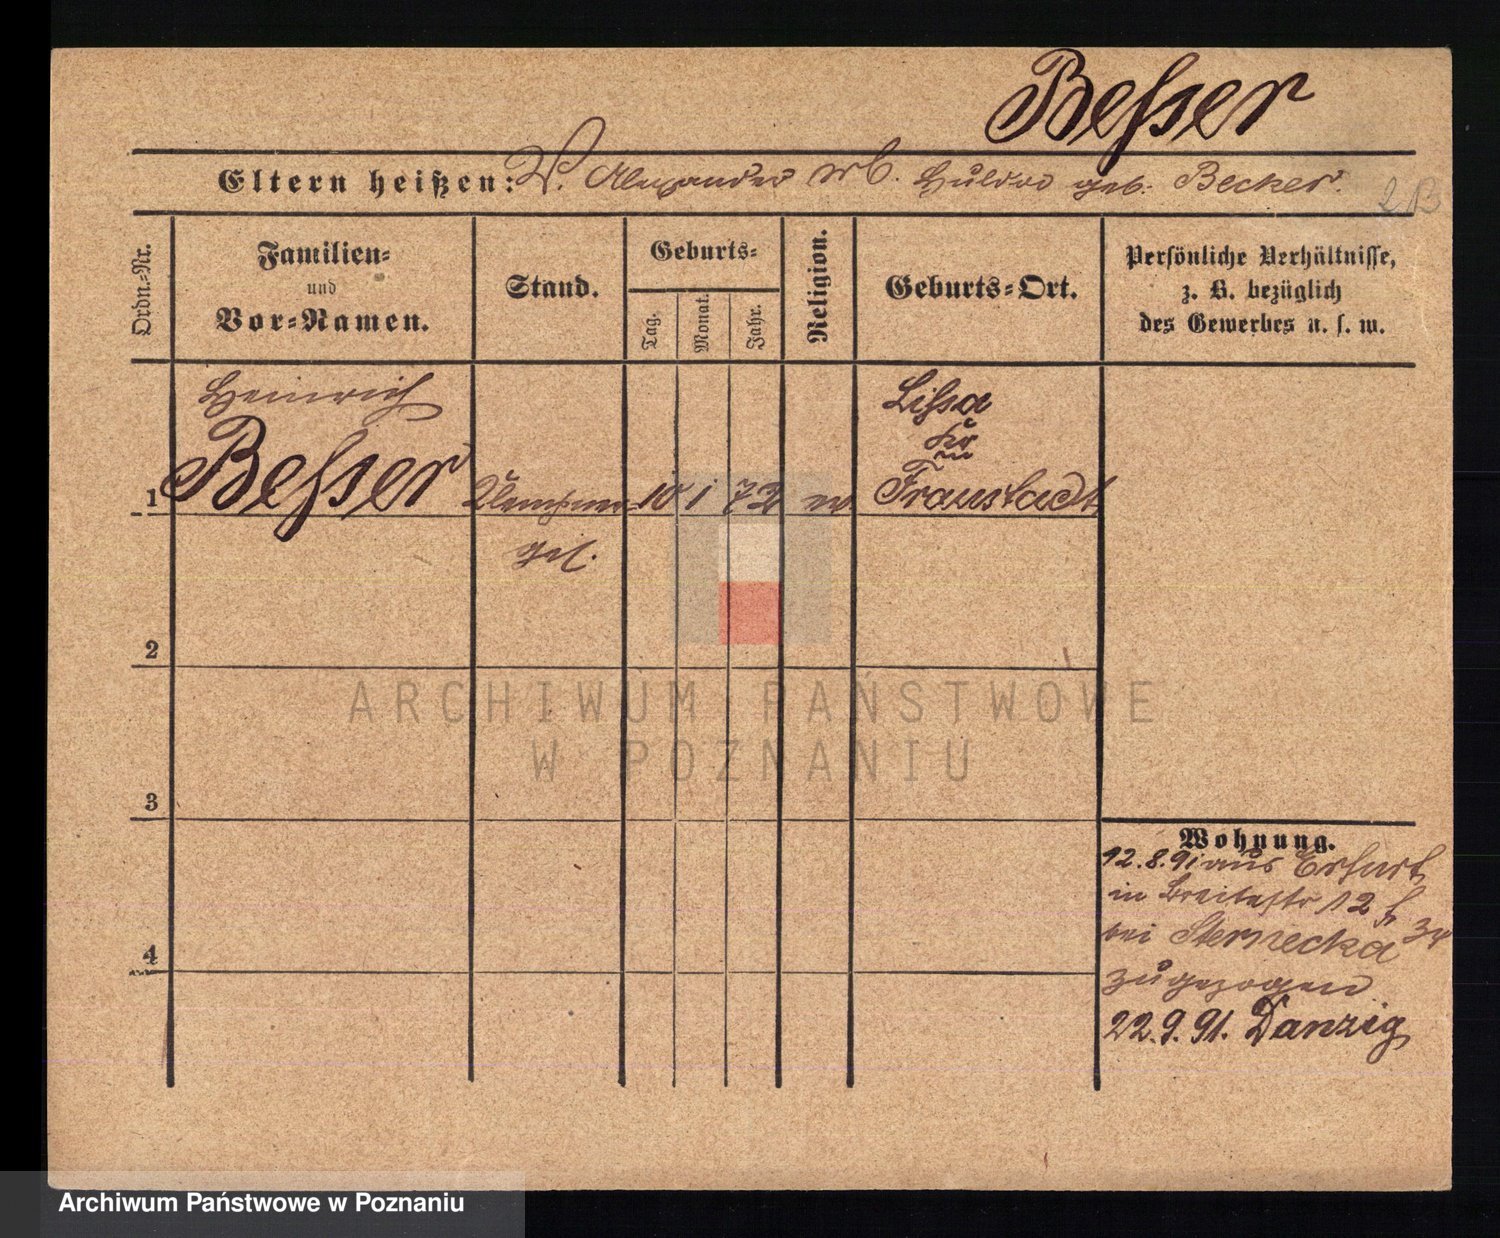 Besser
Eltern heißen: V. Alexander Mb. Hulda geb. Becker.
2B
Ordn.-Nr.
Familien-
und
Vor-Namen.
Stand.
Geburts-
Tag.
Monat.
Jahr.
Religion.
Geburts-Ort.
Persönliche Verhältnisse,
z. B. bezüglich
des Gewerbes u. s. w.
1
Heinrich
Besser
Klempner-
ges.
10 1 72 ev
Lissa
Kr
Fraustadt
2
3
4
Wohnung.
12.8.91 aus Erfurt
in Breitestr 12
bei Sternecka
zugezogen
22.9.91. Danzig
ARCHIWUM PAŃSTWOWE
W POZNANIU
Archiwum Państwowe w Poznaniu